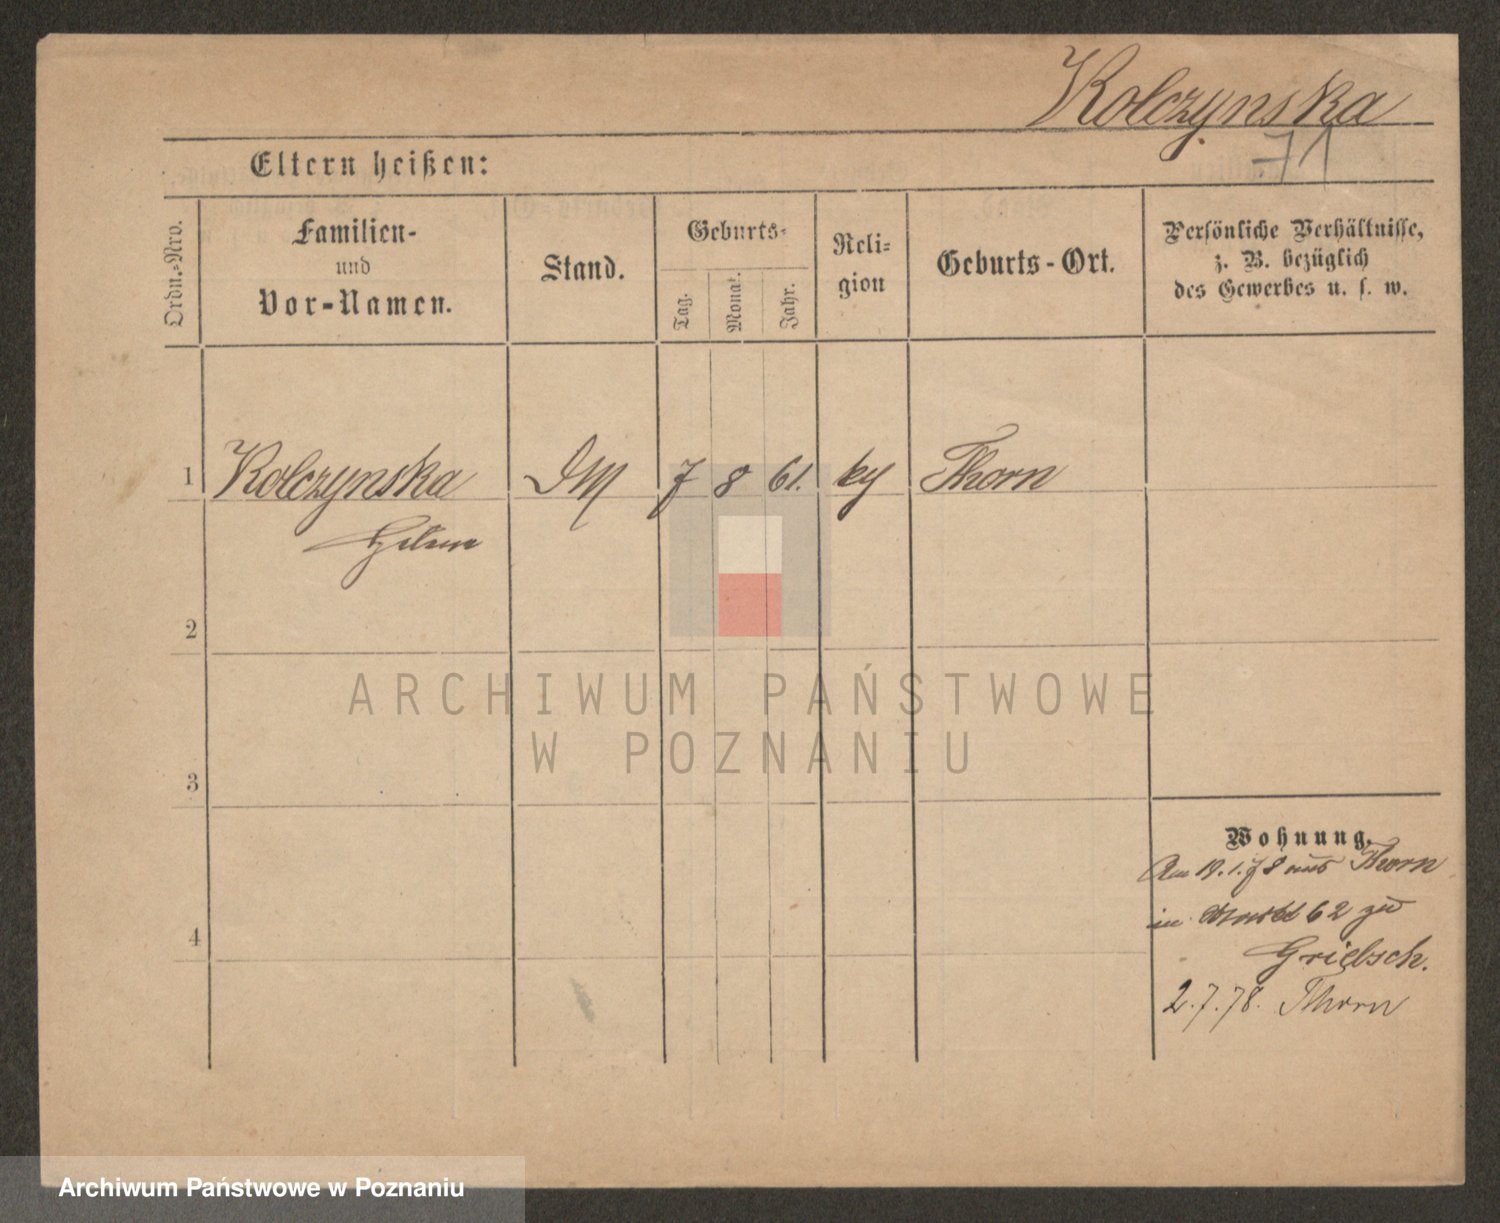 Kolczynska
71
Eltern heißen:
Ordn.-Nro.
Familien-
und
Vor-Namen.
Stand.
Geburts-
Tag.
Monat.
Jahr.
Reli-
gion
Geburts-Ort.
Persönliche Verhältnisse,
z. B. bezüglich
des Gewerbes u. s. w.
1 Kolczynska DM 7 8 61. ky Thorn
Helene
2
3
4
Wohnung.
Am 19.1.78 aus Thorn
in 62 zu
Griebsch.
2.7.78. Thorn
ARCHIWUM PAŃSTWOWE
W POZNANIU
Archiwum Państwowe w Poznaniu